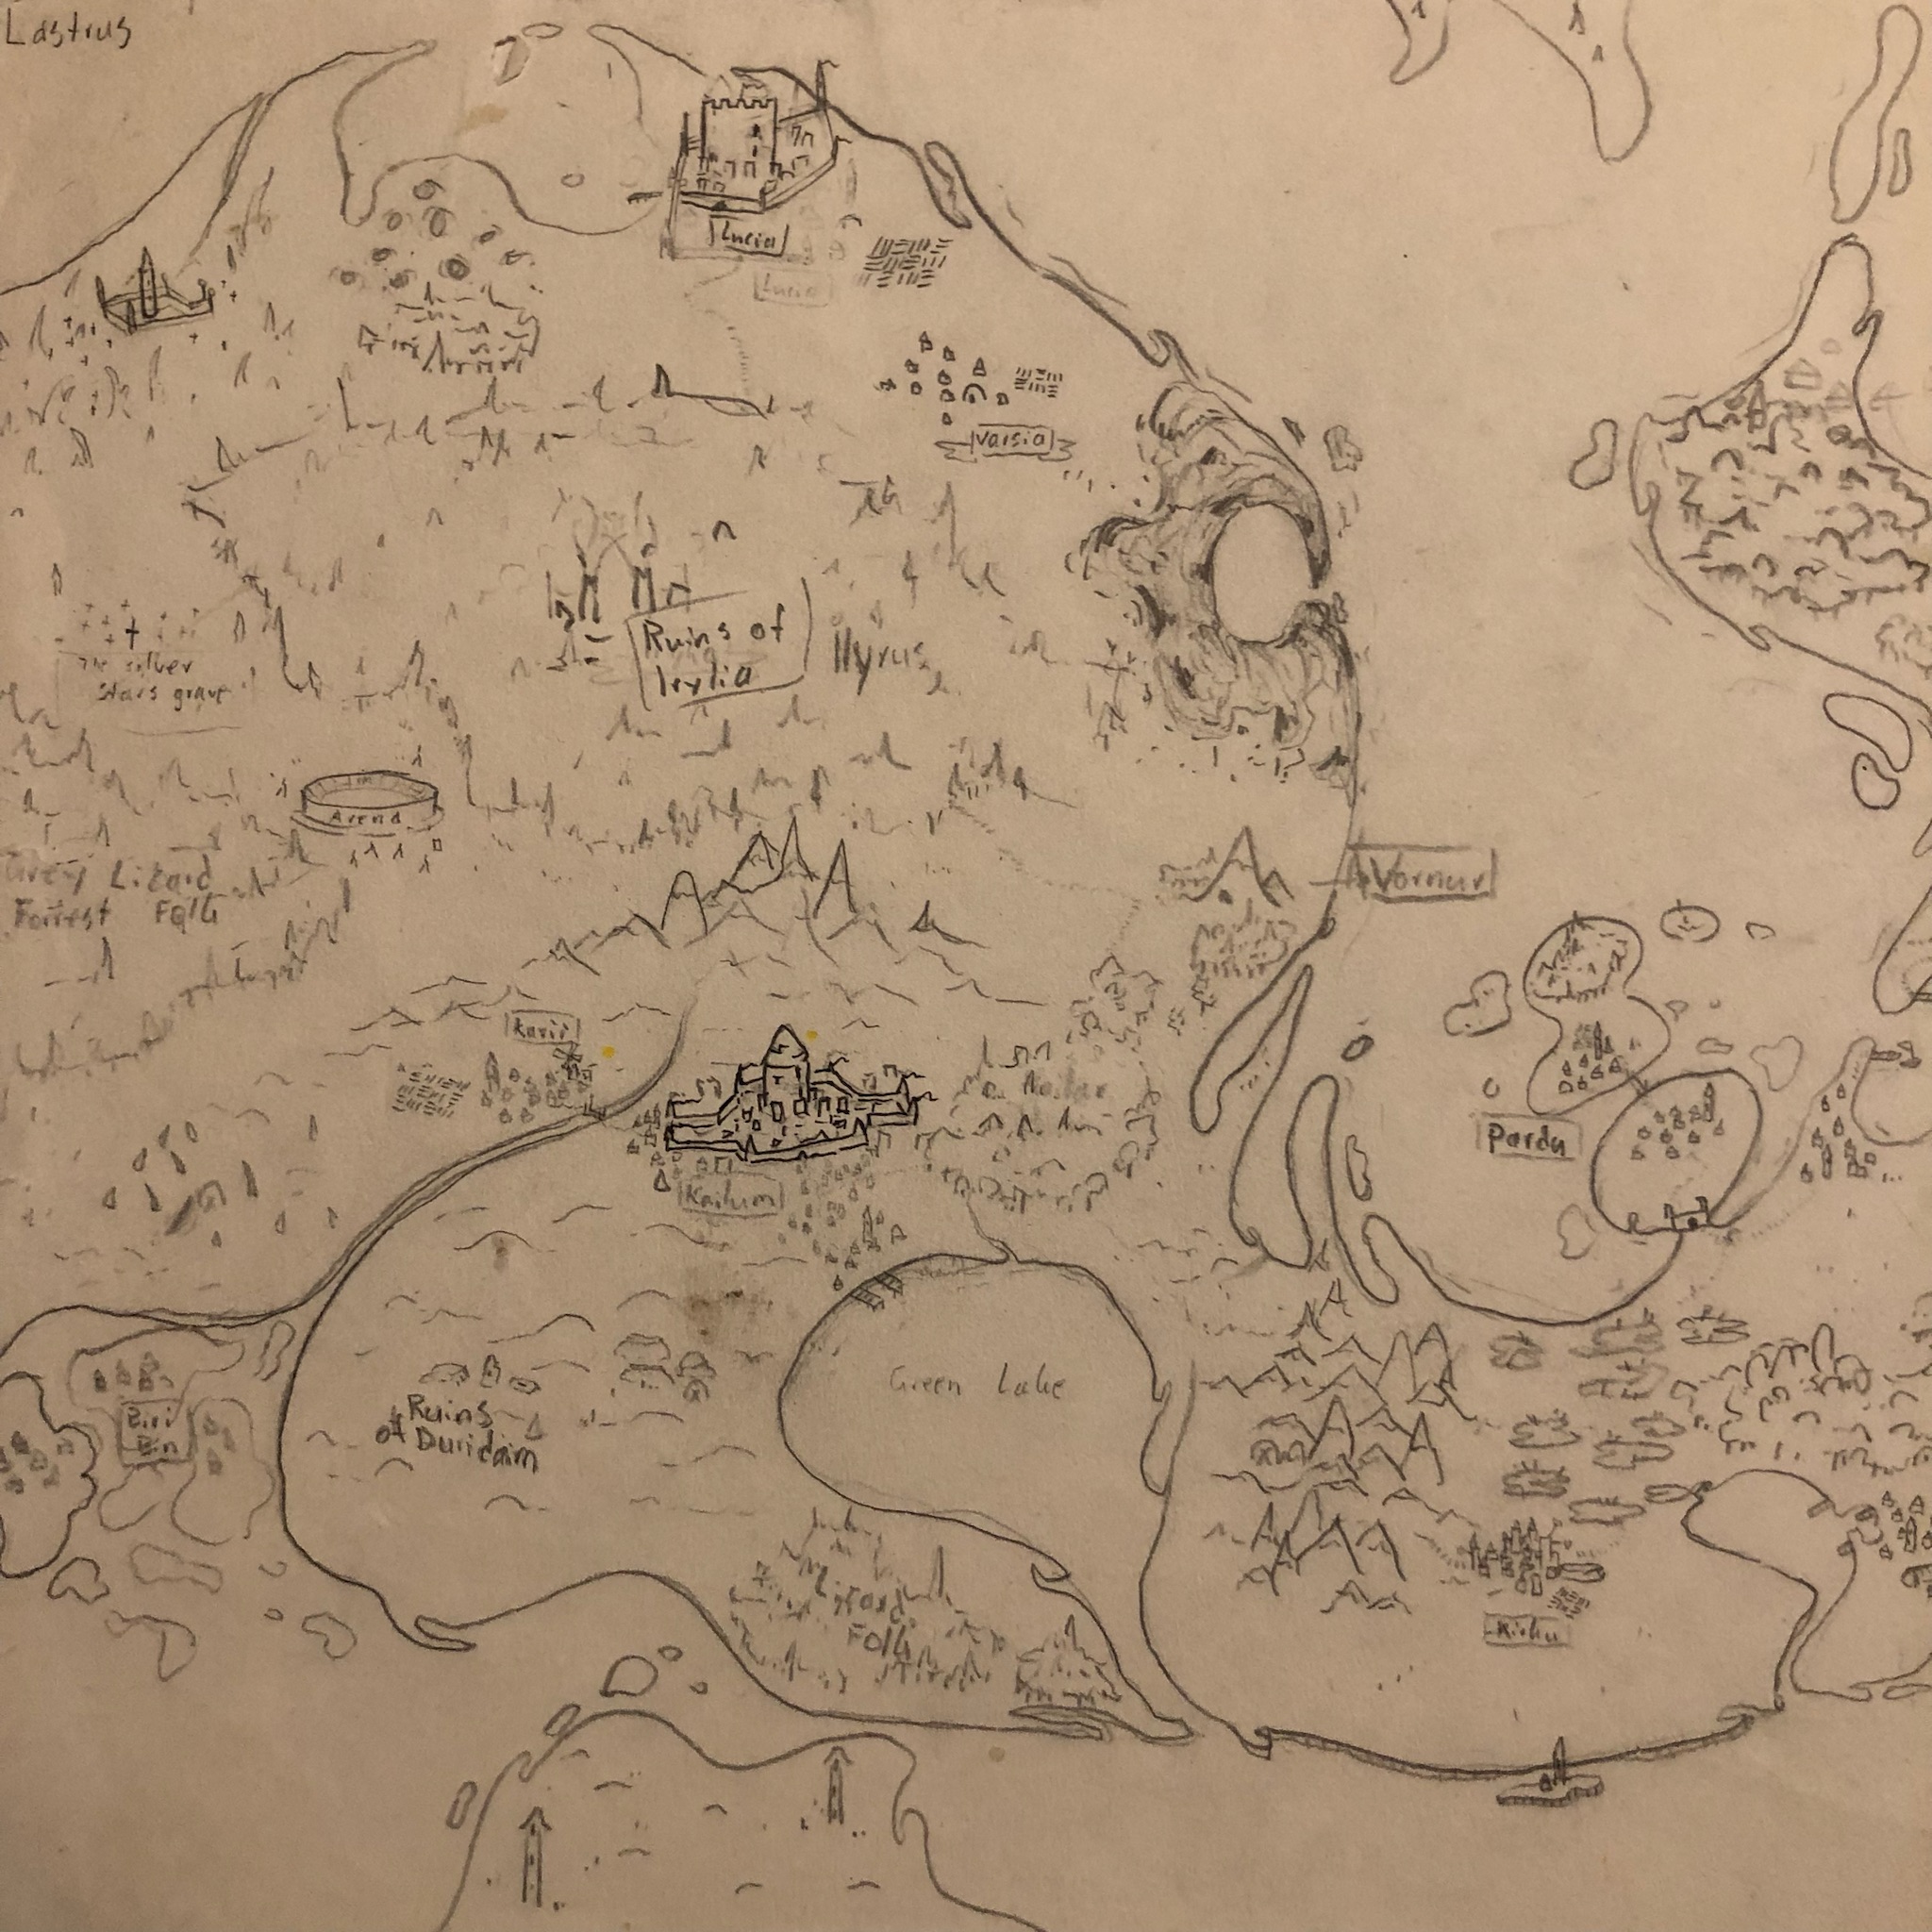 Lastrus
Lucia
Lucia
Varsia
Ruins of
Irylia
Illyrus
The silver
stars grave
Arena
Grey Lizard
Forrest Folk
Vornur
Kavir
Kailum
Pardu
Green Lake
Ruins
of Duridaim
Biri
Bin
Lizard
Folk
Kishu